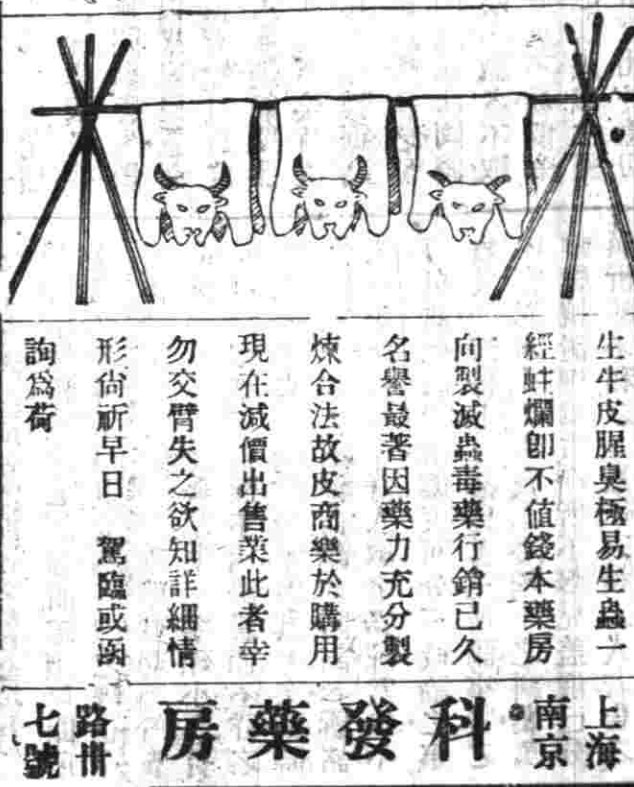 生牛皮腥臭極易生蟲一
經蛀爛卽不值錢本藥房
向製滅蟲毒藥行銷已久
名譽最著因藥力充分製
煉合法故皮商樂於購用
現在減價出售業此者幸
勿交臂失之欲知詳細情
形尙祈早日 駕臨或函
詢爲荷
上海
南京
科發藥房
路卅
七號